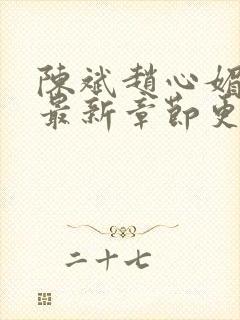 陳斌趙心媚
最新章節更
二十七